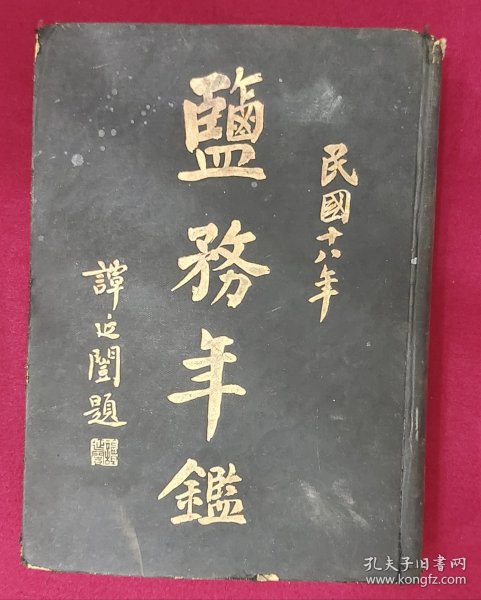 民國十八年
鹽務年鑑
譚延闓題
孔夫子旧书网
www.kongfz.com